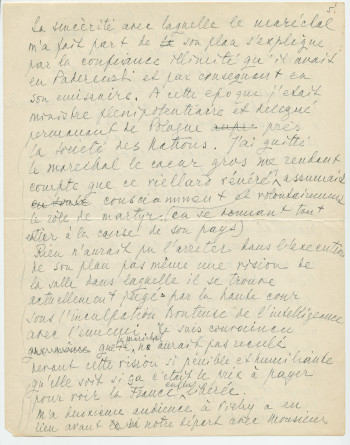 5.
La sincérité avec laquelle le maréchal
m'a fait part de son plan s'explique
par la confiance illimité qu'il avait
en Paderewski et par conséquent en
son émissaire. A cette époque j'étais
ministre plénipotentiaire et délégué
permanent de Pologne près
la Société des Nations. J'ai quitté
le maréchal le cœur gros me rendant
compte que ce vieillard vénéré assumait
consciemment et volontairement
le rôle de martyr (en se donnant tout
entier à la cause de son pays)
Rien n'aurait pu l'arrêter dans l'exécution
de son plan pas même une vision de
la salle dans laquelle il se trouve
actuellement jugé par la haute cour
sous l'inculpation honteuse de l'intelligence
avec l'ennemi. Je suis convaincu
que le maréchal n'aurait pas reculé
devant cette vision si pénible et humiliante
qu'elle soit si ça était le prix à payer
pour voir la France enfin libérée.
Ma deuxième audience à Vichy a eu
lieu avant notre départ avec Monsieur